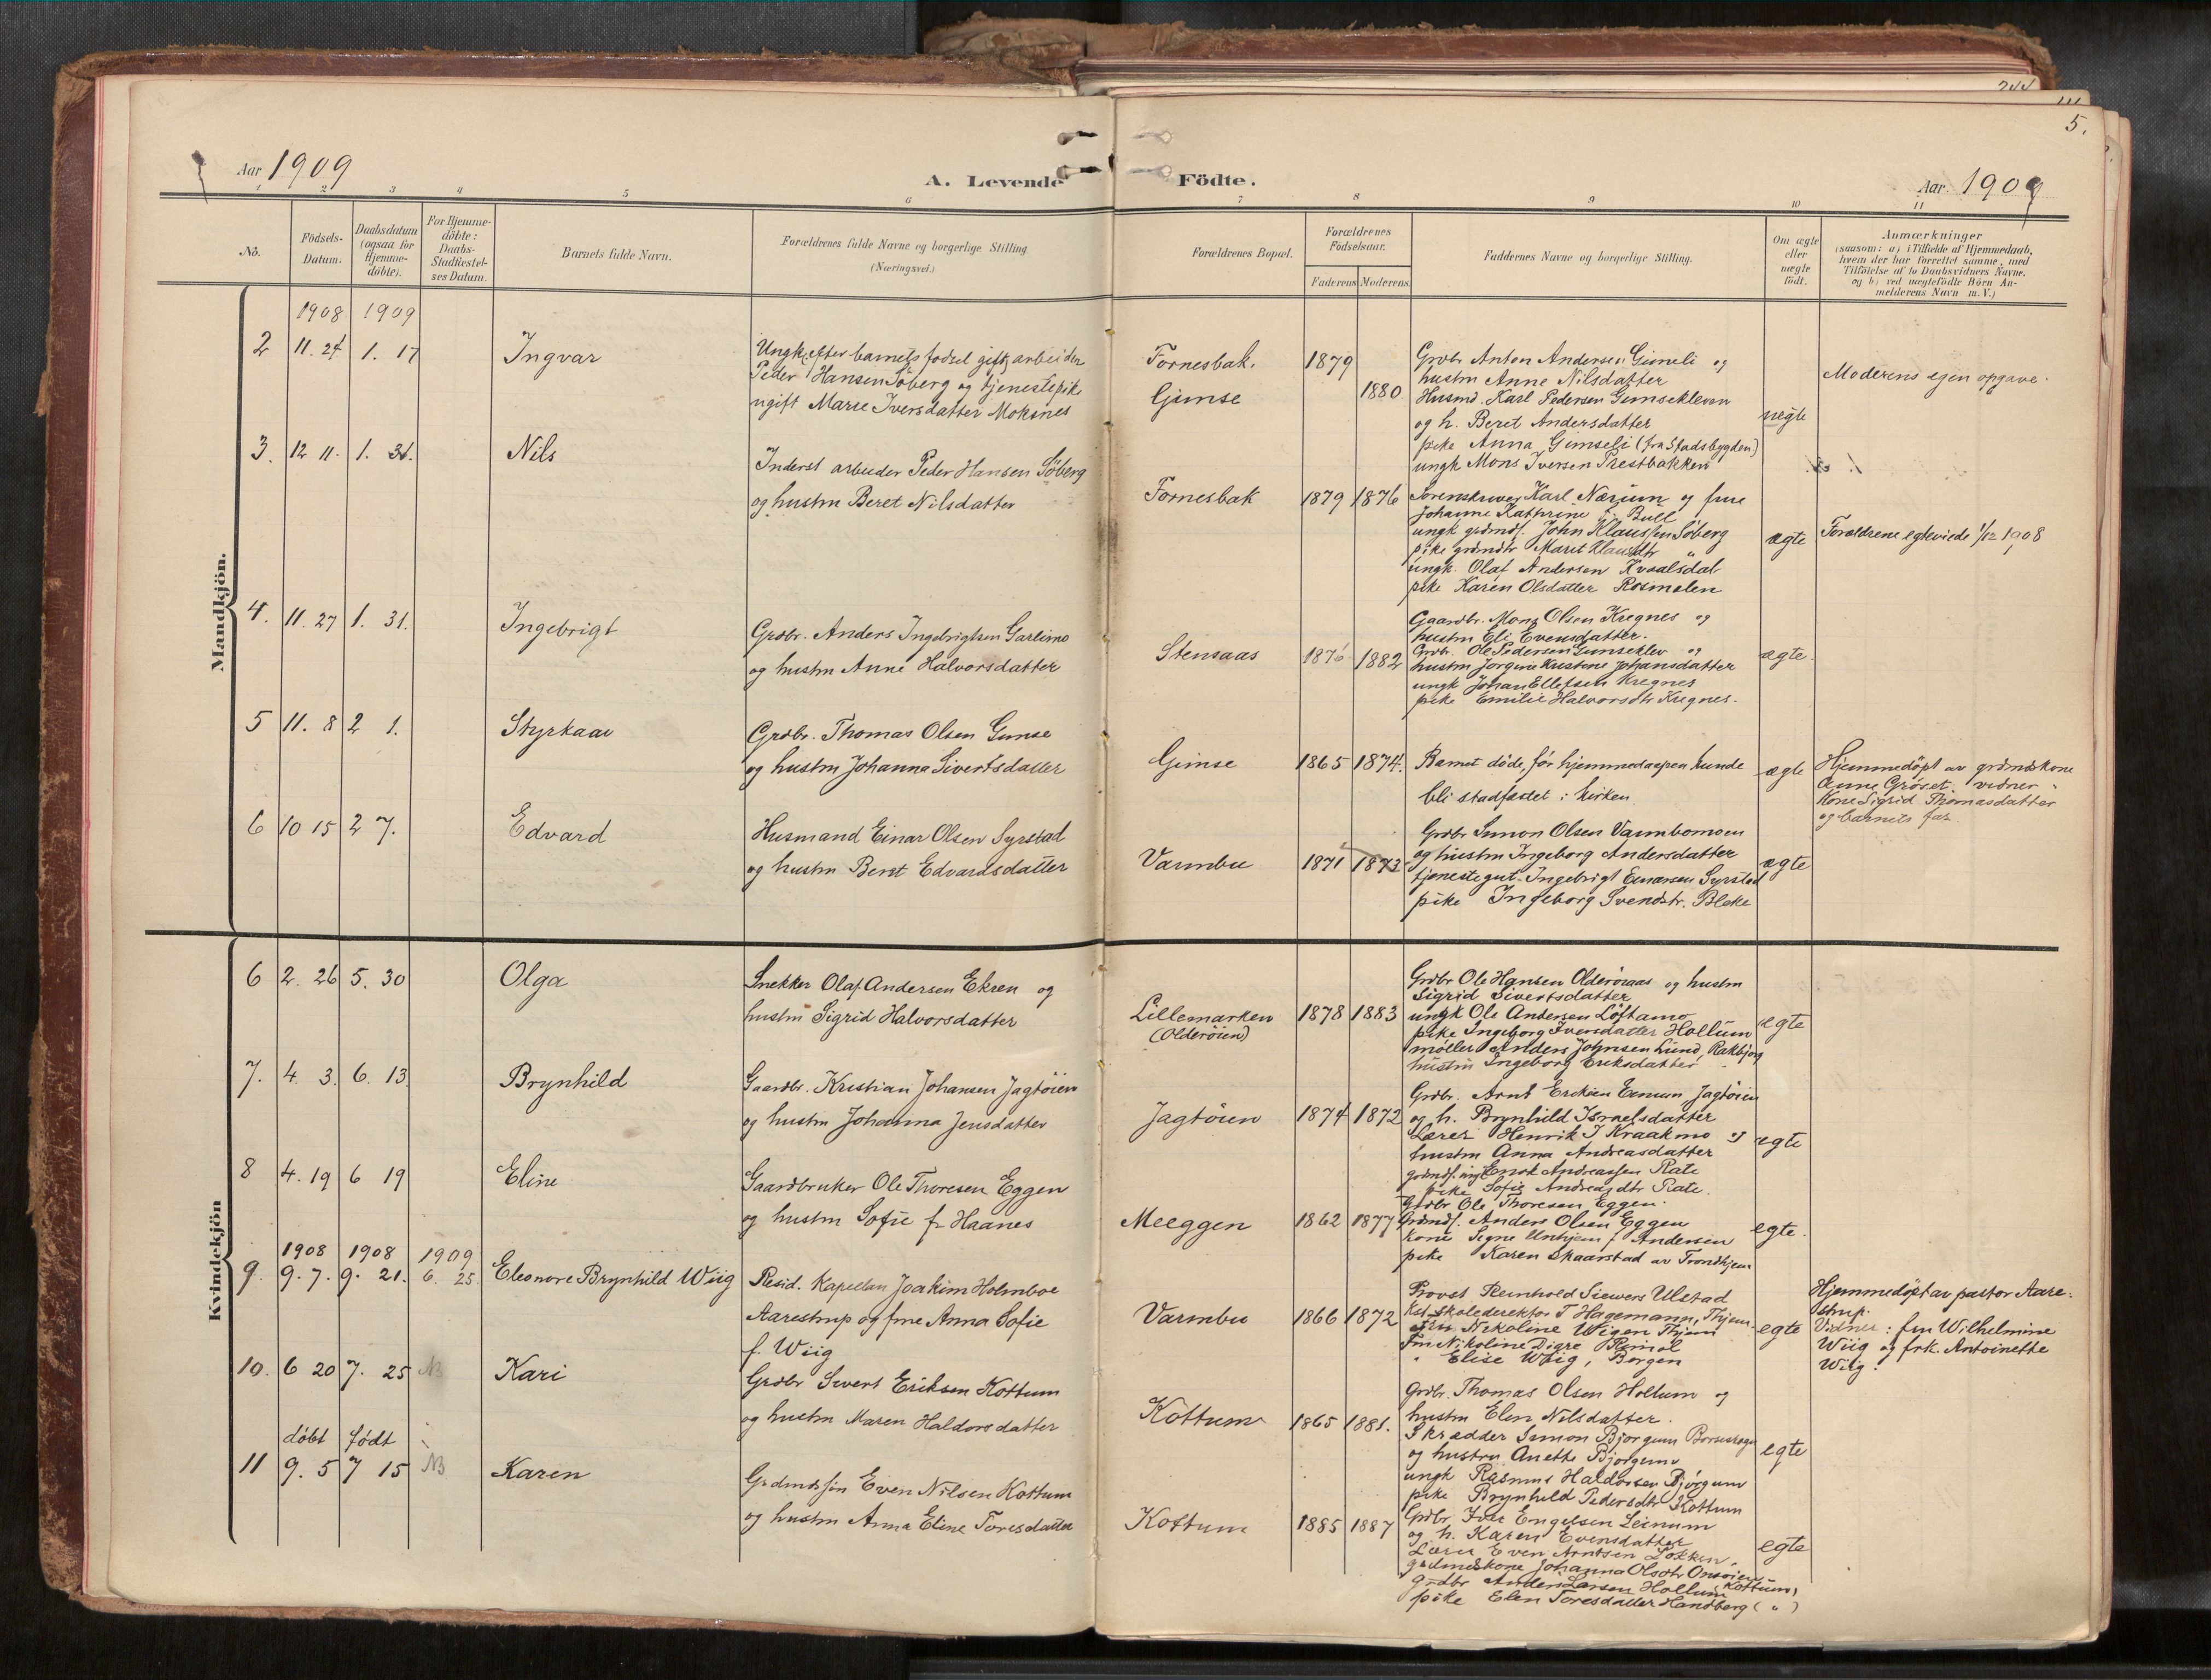 244
5.
Aar 1909
A. Levende Födte.
Aar. 1909
1 2 3 4 5 6 7 8 9 10 11
No.
Födsels-Datum.
Daabsdatum (ogsaa for Hjemme-döbte).
For Hjemme-döbte: Daabs-Stadfæstel-ses Datum.
Barnets fulde Navn.
Forældrenes fulde Navne og borgerlige Stilling. (Næringsvei.)
Forældrenes Bopæl.
Forældrenes Födselsaar.
Faderens Moderens
Faddernes Navne og borgerlige Stilling.
Om ægte eller uægte födt.
Anmærkninger
(saasom: a) i Tilfælde af Hjemmedaab,
hvem der har forrettet samme, med
Tilföielse af to Daabsvidners Navne.
og b) ved uægtefödte Börn An-
melderens Navn m. V.)
Mandkjön.
1908 1909
2 11. 24 1. 17 Ingvar
Ungk. (efter barnets fødsel gift) arbeider
Peder Hansen Söberg og tjenestepike
ugift Marie Iversdatter Moksnes
Fornesbak. 1879
Gimse 1880
Grdbr Anton Andersen Gimseli og
hustru Anne Nilsdatter
Husmd. Karl Pedersen Gimsekleven
og h. Beret Andersdatter
pike Anna Gimseli (fra Stadsbygden)
ungk Mons Iversen Prestbakken
uegte
Moderens egen opgave.
3. 12 11. 1. 31. Nils
Inderst arbeider Peder Hansen Söberg
og hustru Beret Nilsdatter
Fornesbak 1879 1876
Sorenskriver Karl Nærum og frue
Johanne Kathrine f. Bull
ungk grdmds. John Klaussen Söberg
pike grdmdtr Marit Klausdtr "
ungk. Olaf Andersen Kvaalsdal
pike Karen Olsdatter Rosmælen
ægte
Forældrene egteviede 1/12 1908
4. 11. 27 1. 31. Ingebrigt
Grdbr. Anders Ingebrigtsen Garlimo
og hustru Anne Halvorsdatter
Stensaas 1876 1882
Gaardbr. Mons Olsen Kregnes og
hustru Eli Evensdatter.
Grdbr. Ole Pedersen Gimseklev og
hustru Jørgine Kristine Johansdatter
ungk Johan Ellefsen Kregnes
pike Emilie Halvorsdtr Kregnes.
ægte.
5 11. 8 2 1. Styrkaar
Grdbr. Thomas Olsen Gimse
og hustru Johanna Sivertsdatter
Gimse 1865 1874.
Barnet døde, før hjemmedaapen kunde
bli stadfæstet i kirken
ægte
Hjemmedöpt av grdmdskone
Anne Gröset. vidner
Kone Sigrid Thomasdatter
og barnets far.
6 10 15 2 7. Edvard
Husmand Einar Olsen Syrstad
og hustru Beret Edvardsdatter
Varmbu 1871 1873
Grdbr Simon Olsen Varmbomoen
og hustru Ingeborg Andersdatter
tjenestegut Ingebrigt Einarsen Syrstad
pike Ingeborg Svendstr. Bleke
ægte
Kvindekjön
6 2. 26 5. 30 Olga
Snekker Olaf Andersen Ekren og
hustru Sigrid Halvorsdatter
Lillemarken 1878 1883
(Olderöien)
Grdbr Ole Hansen Olderöraas og hustru
Sigrid Sivertsdatter
ungk Ole Andersen Löftamo
pike Ingeborg Iversdatter Hollum
møller Anders Johnsen Lund, Rakbjörg
hustru Ingeborg Eriksdatter
egte
7. 4. 3. 6. 13. Brynhild
Gaardbr. Kristian Johansen Jagtöien
og hustru Johanna Jensdatter
Jagtöien 1874 1872
Grdbr. Arnt Jagtöien
og h. Brynhild Israelsdatter
Lærer Henrik J Kraakmo og
hustru Anna Andreasdatter
grdmds. ungk Andreassen Rate
pike Sofie Andreasdtr Rate.
egte
8 4. 19 6 19 Eline
Gaardbruker Ole Thoresen Eggen
og hustru Sofie f. Haanes
Meeggen 1862 1877
Grdbr Ole Thoresen Eggen.
Grdmds. Anders Olsen Eggen
kone Signe Unhjem f. Andersen
pike Karen Skaarstad av Trondhjem
egte.
1908 1908 1909
9. 9. 7. 9. 21. 6. 25. Eleonore Brynhild Wiig
Resid. Kapellan Joakim Holmboe
Aarestrup og frue Anna Sofie
f. Wiig
Varmbu 1866 1872
Provst Reinhold Siewers Ulstad
Kst. skoledirektør T Hagemann, Thjem.
Fru Nikoline Wigen Thjem
Fru Nikoline Digre Reinol
" Elise Wiig, Borgen
egte
Hjemmedöpt av pastor Aare-
strup.
Vidner: fru Wilhelmine
Wiig og frk. Antoinette
Wiig.
10. 6 20 7. 25 NB Kari
Grdbr Sivert Eriksen Kottum
og hustru Maren Haldorsdatter
Kottum 1865 1881.
Grdbr. Thomas Olsen Hollum og
hustru Elen Nilsdatter.
Skrædder Simon Bjørgum
og hustru Anette Bjørgum
ungk Rasmus Haldorsen Bjørgum
pike Brynhild Pedersdtr Kottum
egte
döbt födt
11 9. 5 7 15 NB Karen
Grdmdssøn Even Nilsen Kottum
og hustru Anna Eline Toresdatter
Kottum 1885 1887
Grdbr. Iver Engelsen Leinum
og h. Karen Evensdatter
Lærer Even Arntsen Løkken,
grdmdskone Johanna Olsdtr
Grdbr Anders Larsen Hollum (Kottum)
pike Elen Toresdatter Handberg ( " )
egte